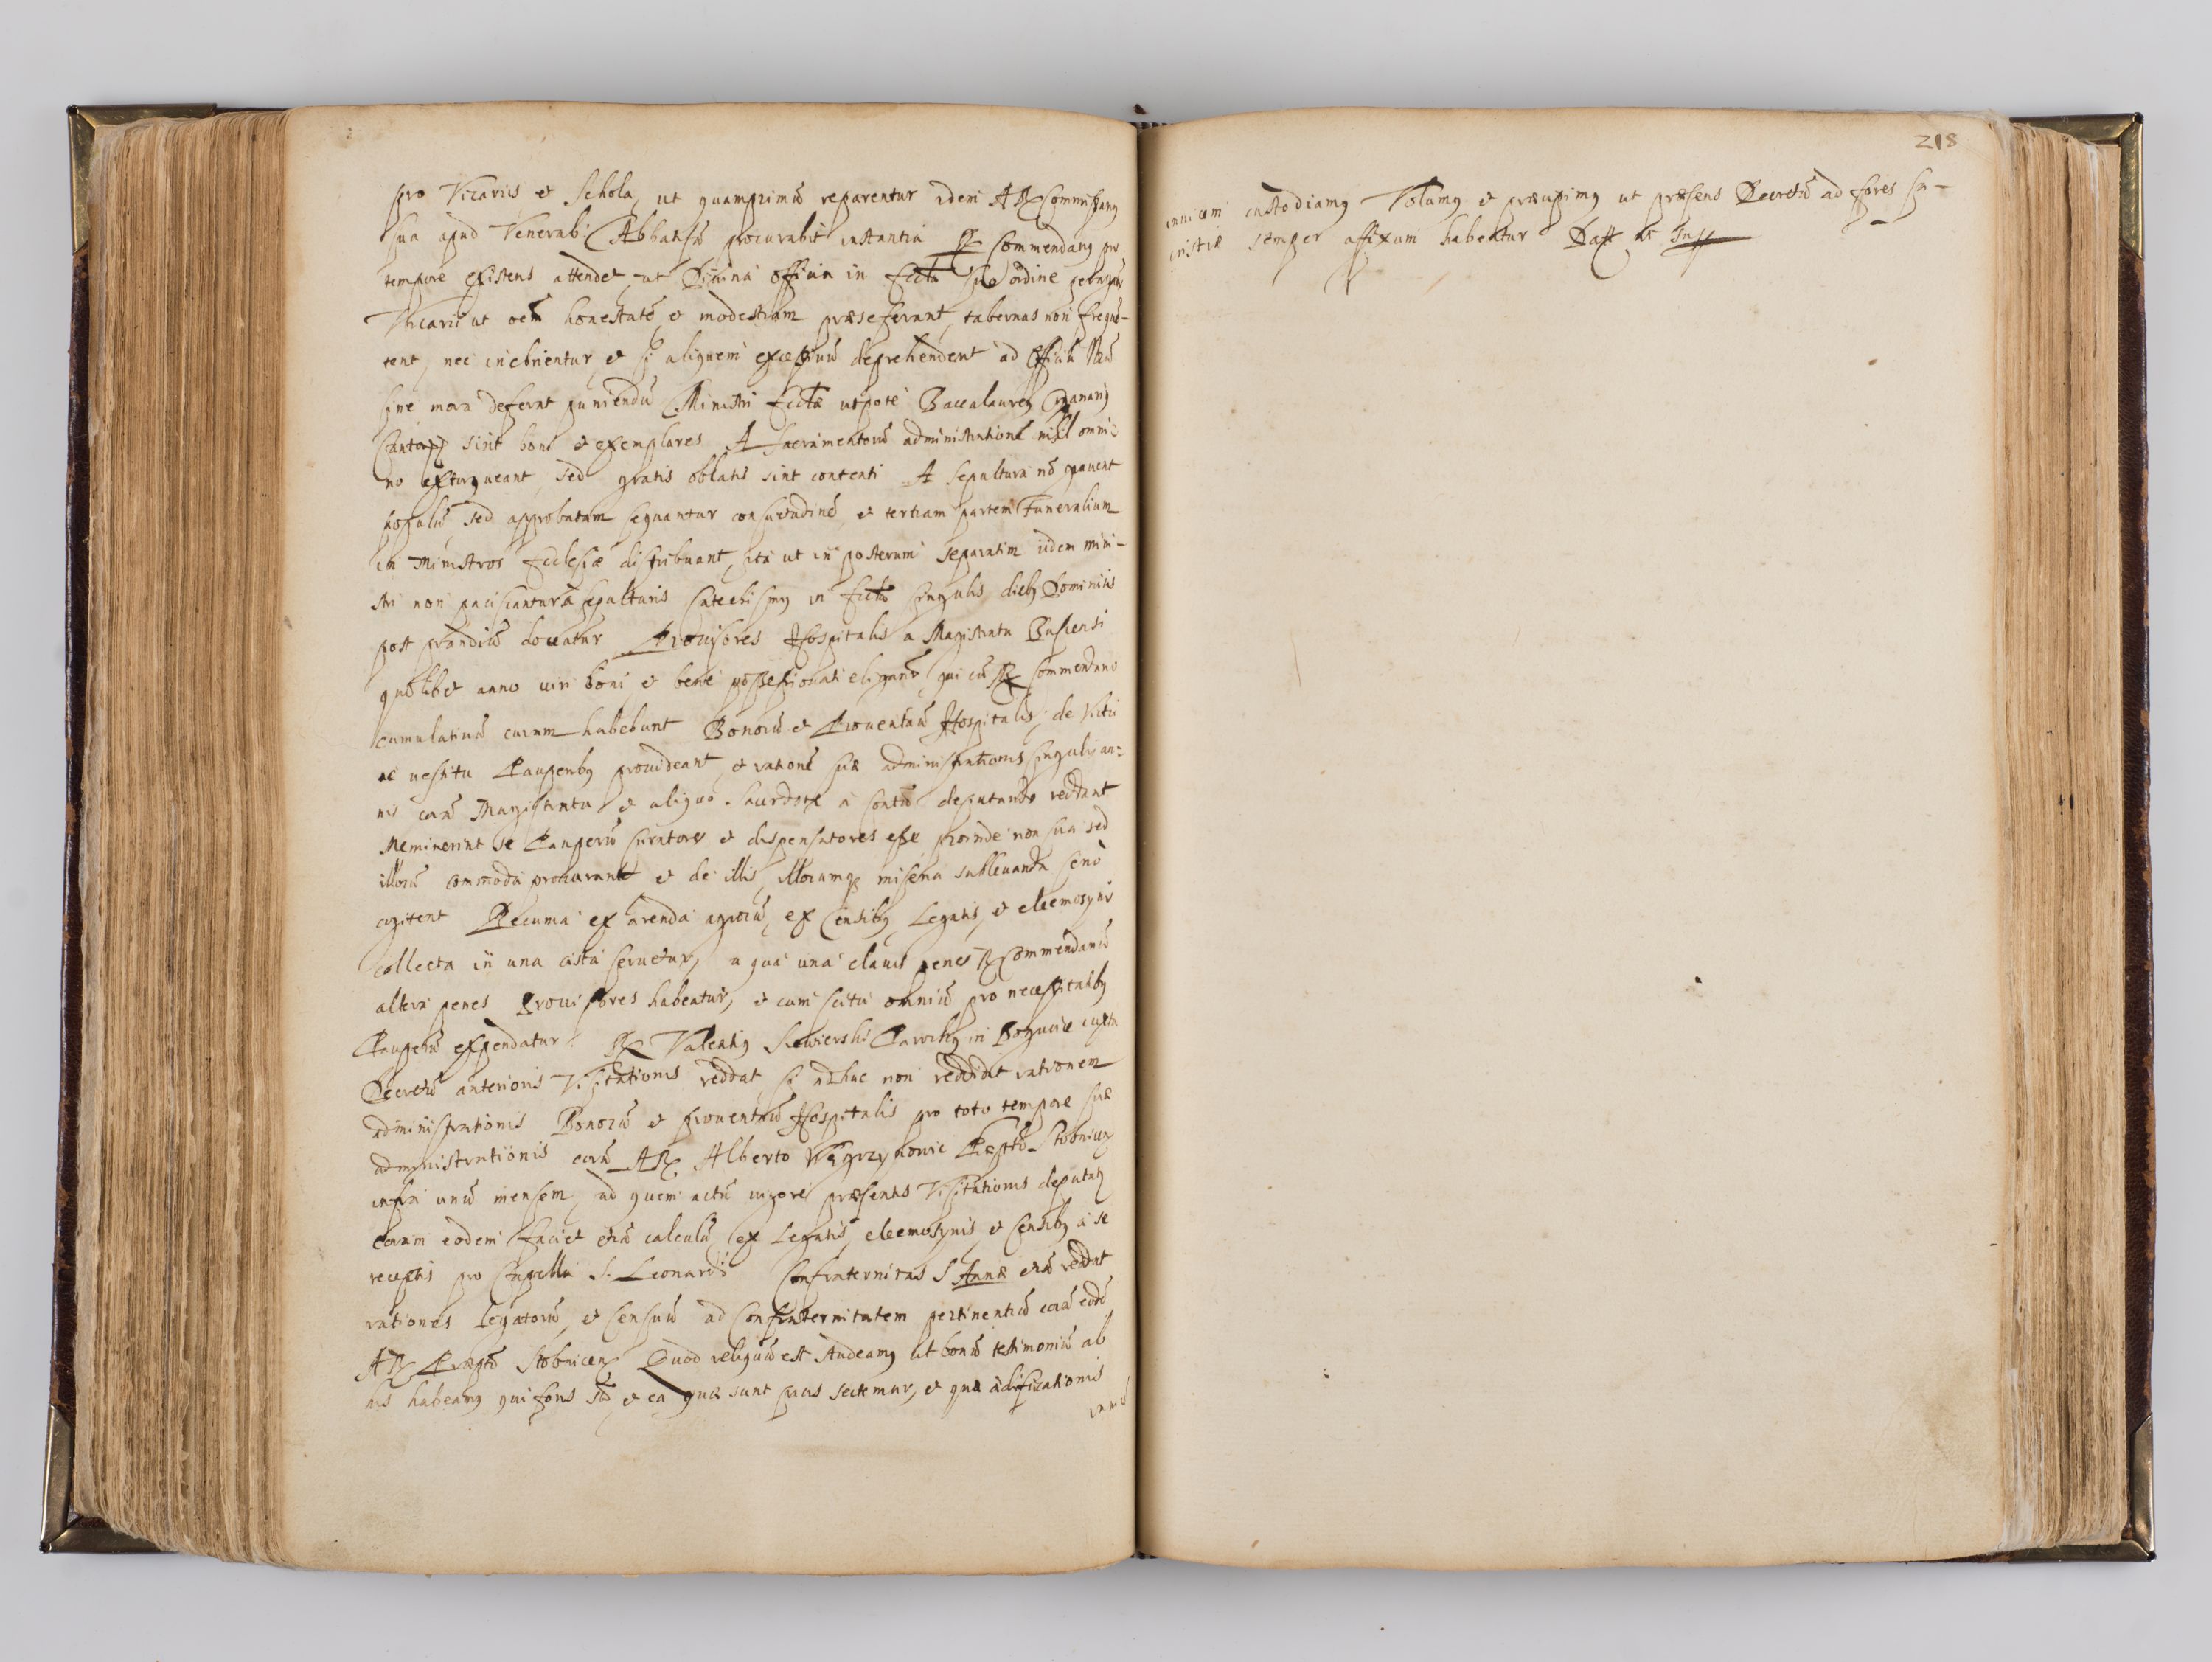 pro Vicariis et Schola, ut quamprimū reparentur idem AR Commissarius
sua apud Venerab: Abbatissā procurabit instantia R Commendarius pro
tempore existens attendet, ut Divina officia in Eccła suo ordine peragant
Vicarii ut oēm honestatē, et modestiam præseferant, tabernas non frequē-
tent, nec inebrientur, et si aliquem excessivū deprehenderit ad Officiū
sine mora deferat puniendū Ministri Eccłæ utpote Baccalaureus Organarius
Cantor sint boni et exemplares A Sacramentorū administratione nihil omni-
no extorqueant, sed gratis oblatis sint contenti A sepultura nō gravent
populū, sed approbatam sequantur consuetudinē, et tertiam partem Funeralium
in Ministros Ecclesiæ distribuant, ita ut in posterum separatim iidem mini-
stri non paciscantur a sepulturis Catechismus in Eccła singulis diebus Dominicis
post prandiū doceatur Provisores Hospitalis a Magistratu Buscensi
quolibet anno viri boni et bene possessionati eligant, qui cū R Commendario
cumulativā curam habebunt Bonorū et Proventuū Hospitalis, de victu
ac vestitu Pauperibus provideant, et rationē suæ administrationis singulis an-
nis corā Magistratu et aliquo Sacerdote a deputando reddant
Meminerint se Pauperū curatores et dispensatores esse proinde non sua sed
illorū commoda procurant et de illis, illorumque miseria sublevanda serio
cogitent Pecunia ex arenda agrorū, ex Censibus, Legatis, et eleemosynis
collecta in una cista servetur, a qua una clavis penes R Commendariū
altera penes Provisores habeatur, et cum scitu omniū pro necessitatibus
Pauperū expendatur. R Valentius Siewierski Parochus in iuxta
Decretū anterioris Visitationis reddat si adhuc non reddidit rationem
administrationis Bonorū et proventuū Hospitalis pro toto tempore suæ
administrationis corā AR Alberto Węgrzynowic Præpto Stobnicen
infra unū mensem, ad quem actū vigore præsentis Visitationis deputatus
coram eodem faciet etiā calculū ex Legatis, eleemosynis, et Censibus a se
receptis pro Capella S. Leonardi Confraternitas S Annæ etiā reddat
rationes legatorū, et Censuū ad Confraternitatem pertinentiū corā eodē
AR Præpto Stobnicen Quod reliquū est Studeamus ut bonū testimoniū ab
his habeamus qui foris sūt, et ea quæ sunt pacis sectemur, et quæ ædificationis
invicē
218
invicem custodiamus Volumus et præcipimus ut præsens Decretū ad fores Sa-
cristiæ semper affixum habeatur Datt ut supp